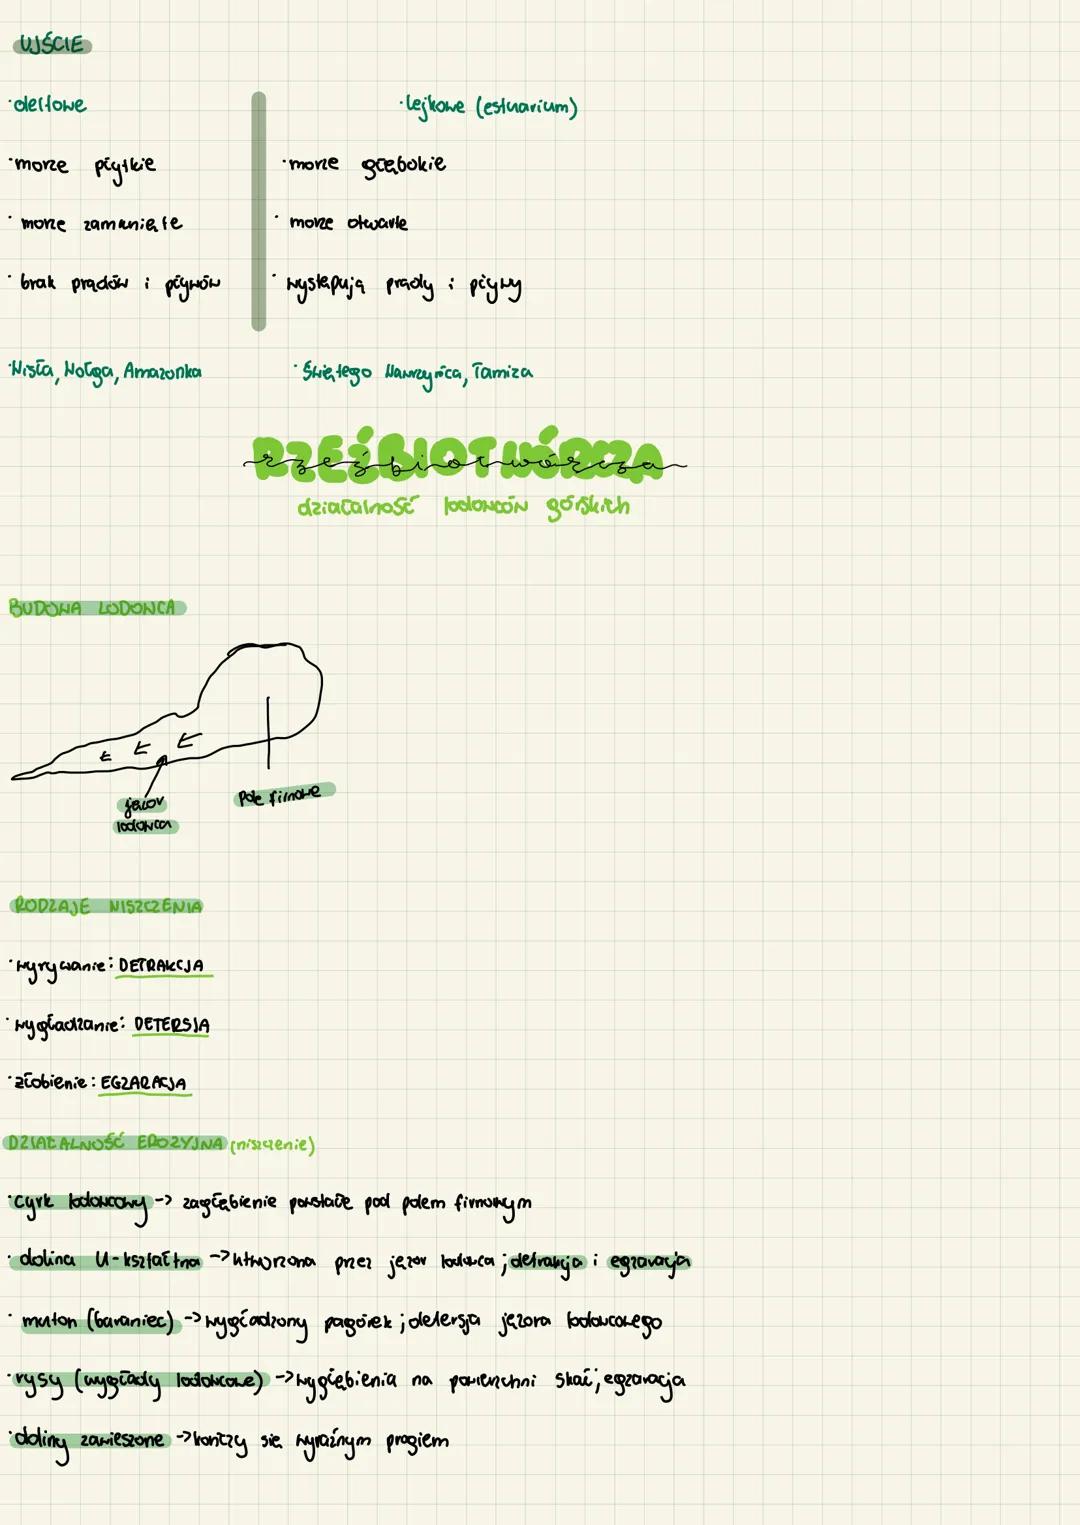 UJŚCIE
·deltowe ·lejkowe (estuarium)
·morze płytkie ·morze głębokie
·morze zamknięte ·morze otwarte
·brak prądów i pływów ·występują prądy i pływy
·Wisła, Wołga, Amazonka ·Świętego Wawrzyńca, Tamiza
RZEŹBIOTWÓRCZA
działalność lodowców górskich
BUDOWA LODOWCA
jęzor
lodowca
pole firnowe
RODZAJE NISZCZENIA
·wyrywanie: DETRAKCJA
·wygładzanie: DETERSJA
·żłobienie: EGZARACJA
DZIAŁALNOŚĆ EROZYJNA (niszczenie)
·cyrk lodowcowy -> zagłębienie powstałe pod polem firnowym
·dolina U-kształtna -> utworzona przez jęzor lodowca; detrakcja i egzaracja
·muton (baraniec) -> wygładzony pagórek; detersja jęzora lodowcowego
·rysy (wygłady lodowcowe) -> wygłębienia na powierzchni skał; egzaracja
·doliny zawieszone -> kończy się wyraźnym progiem